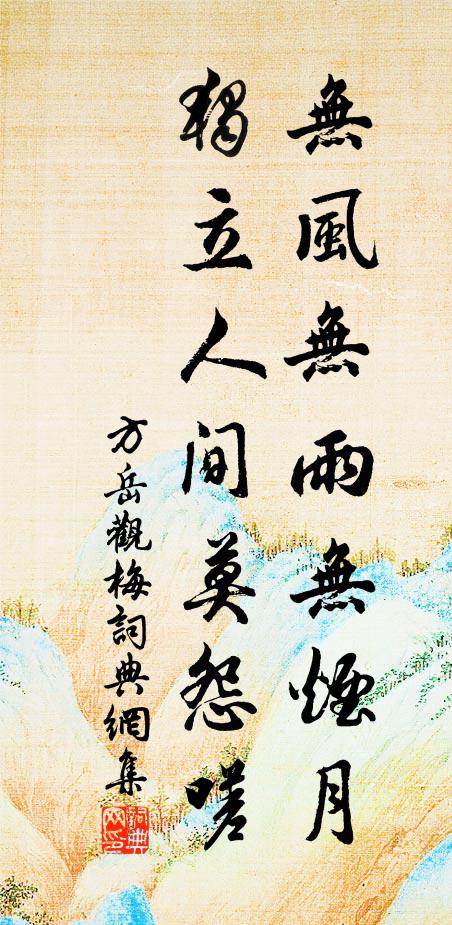 無風無雨無煙月
獨立人間莫怨嗟
方岳觀梅詞典網集
詞典
网印